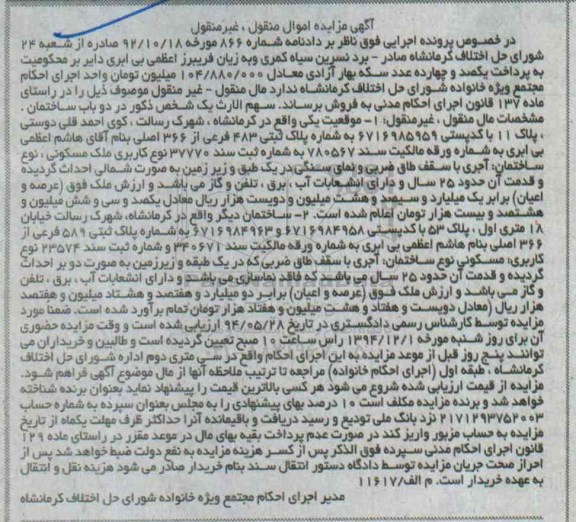 آگهی مزایده اموال منقول ، غیرمنقول
در خصوص پرونده اجرایی فوق ناظر بر دادنامه شماره ۸۶۶ مورخه ۹۲/۱۰/۱۸ صادره از شعبه ۲۴
شورای حل اختلاف کرمانشاه صادر - برد نسرین سیاه کمری وبه زیان فریبرز اعظمی بی ابری دایر بر محکومیت
به پرداخت یکصد و چهارده عدد سکه بهار آزادی معادل ۱۰۴/۸۸۰/۰۰۰ میلیون تومان واحد اجرای احکام
مجتمع ویژه خانواده شورای حل اختلاف کرمانشاه ندارد مال منقول - غیر منقول موصوف ذیل را در راستای
ماده ۱۳۷ قانون اجرای احکام مدنی به فروش برساند. سهم الارث یک شخص ذکور در دو باب ساختمان .
مشخصات مال منقول ، غیرمنقول: ۱- موقعیت یکی واقع در کرمانشاه ، شهرک رسالت ، کوی احمد قلی دوستی
، پلاک ۱۱ با کدپستی ۶۷۱۶۹۸۵۹۵۹ به شماره پلاک ثبتی ۴۸۳ فرعی از ۳۶۶ اصلی بنام آقای هاشم اعظمی
بی ابری به شماره ورقه مالکیت سند ۷۸۰۵۶۷ به شماره ثبت سند ۳۷۷۷۰ نوع کاربری ملک مسکونی ، نوع
ساختمان: آجری با سقف طاق ضربی و نمای سنگی در یک طبق و زیر زمین به صورت شمالی احداث گردیده
و قدمت آن حدود ۲۵ سال و دارای انشعابات آب ، برق ، تلفن و گاز می باشد و ارزش ملک فوق (عرصه و
اعیان) برابر یک میلیارد و سیصد و هشت میلیون و دویست هزار ریال معادل یکصد و سی و شش میلیون و
هشتصد و بیست هزار تومان اعلام شده است. ۲- ساختمان دیگر واقع در کرمانشاه، شهرک رسالت خیابان
۱۸ متری اول ، پلاک ۵۳ با کدپستی ۶۷۱۶۹۸۴۹۵۸ و ۶۷۱۶۹۸۴۹۶۳ به شماره پلاک ثبتی ۵۸۹ فرعی از
۳۶۶ اصلی بنام هاشم اعظمی بی ابری به شماره ورقه مالکیت سند ۳۴۰۶۷۱ و شماره ثبت سند ۲۳۵۷۴ نوع
کاربری: مسکونی نوع ساختمان: آجری با سقف طاق ضربی که در یک طبقه و زیرزمین به صورت دو بر احداث
گردیده و قدمت آن حدود ۲۵ سال می باشد که فاقد نماسازی می باشد و دارای انشعابات آب ، برق ، تلفن
و گاز می باشد و ارزش ملک فوق (عرصه و اعیان) برابر دو میلیارد و هفتصد و هشتاد میلیون و هفتصد
هزار ریال (معادل دویست و هفتاد و هشت میلیون و هفتاد هزار تومان تمام برآورد شده است. ضمنا مورد
مزایده توسط کارشناس رسمی دادگستری در تاریخ ۹۴/۰۵/۲۸ ارزیابی شده است و وقت مزایده حضوری
آن برای روز شنبه مورخه ۱۳۹۴/۱۲/۱ راس ساعت ۱۰ صبح تعیین گردیده است و طالبین و خریداران می
توانند پنج روز قبل از موعد مزایده به این اجرای احکام واقع در سی متری دوم اداره شورای حل اختلاف
کرمانشاه ، طبقه اول (اجرای احکام خانواده) مراجعه تا ترتیب ملاحظه آنها از مال موضوع آگهی فراهم شود.
مزایده از قیمت ارزیابی شده شروع می شود هر کسی بالاترین قیمت را پیشنهاد نماید بعنوان برنده شناخته
خواهد شد و برنده مزایده مکلف است ۱۰ درصد بهای پیشنهادی را به مجلس بعنوان سپرده به شماره حساب
۲۱۷۱۲۹۳۷۵۲۰۰۳ نزد بانک ملی تودیع و رسید دریافت و باقیمانده آنرا حداکثر ظرف مهلت یکماه از تاریخ
مزایده به حساب مزبور واریز کند در صورت عدم پرداخت بقیه بهای مال در موعد مقرر در راستای ماده ۱۲۹
قانون اجرای احکام مدنی سپرده فوق الذکر پس از کسر هزینه مزایده به نفع دولت ضبط خواهد شد پس از
احراز صحت جریان مزایده توسط دادگاه دستور انتقال سند بنام خریدار صادر می شود هزینه نقل و انتقال
به عهده خریدار است. م الف/۱۱۶۱۷
مدیر اجرای احکام مجتمع ویژه خانواده شورای حل اختلاف کرمانشاه